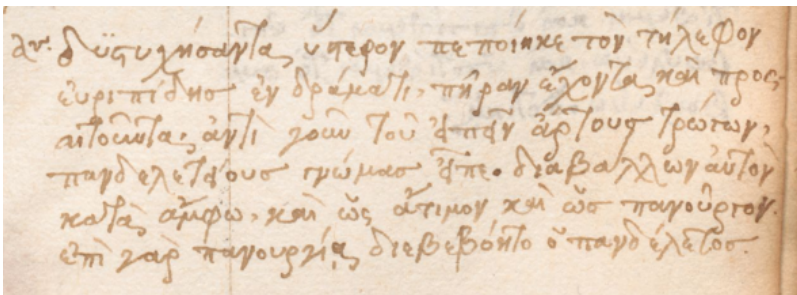 δυστυχήσαντα, ὕστερον πεποίηκε τὸν τήλεφον
εὐριπίδης ἐν δράματι, πήραν ἔχοντα, καὶ προς-
αιτοῦντα, ἀντὶ γοῦν τοῦ εἰπεῖν ἄρτους τρώγων,
πανδελετείους γνώμας εἶπε. διαβάλλων αὐτὸν
κατὰ ἄμφω, καὶ ὡς ἄτιμον καὶ ὡς πανοῦργον.
ἐπὶ γὰρ πανουργίᾳ διεβεβόητο ὁ πανδέλετος.